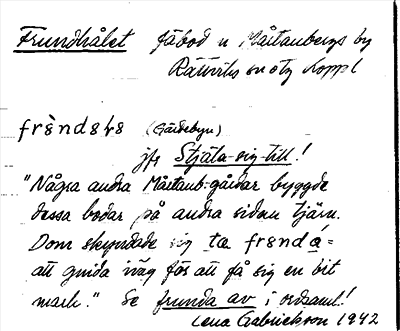 Frundhålet fäbod u Mårtanbergs by
Rättviks sn o tg Koppl
frə̀ndɑɫɐ (Gärdebyn)
jfr Stjäla-sig-till!
"Några andra Mårtanb:gårdar byggde
dessa bodar på andra sidan tjärn.
Dom skyndade sig ta frəndá =
att gnida iväg för att få sig en bit
mark." Se frunda av i ordsaml!
Lena Gabrielsson 1942